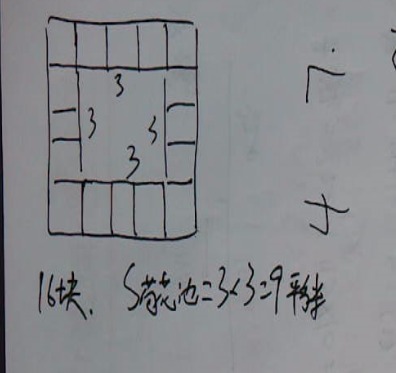 3
3 3
3
16块、S荷花池=3×3=9平方米